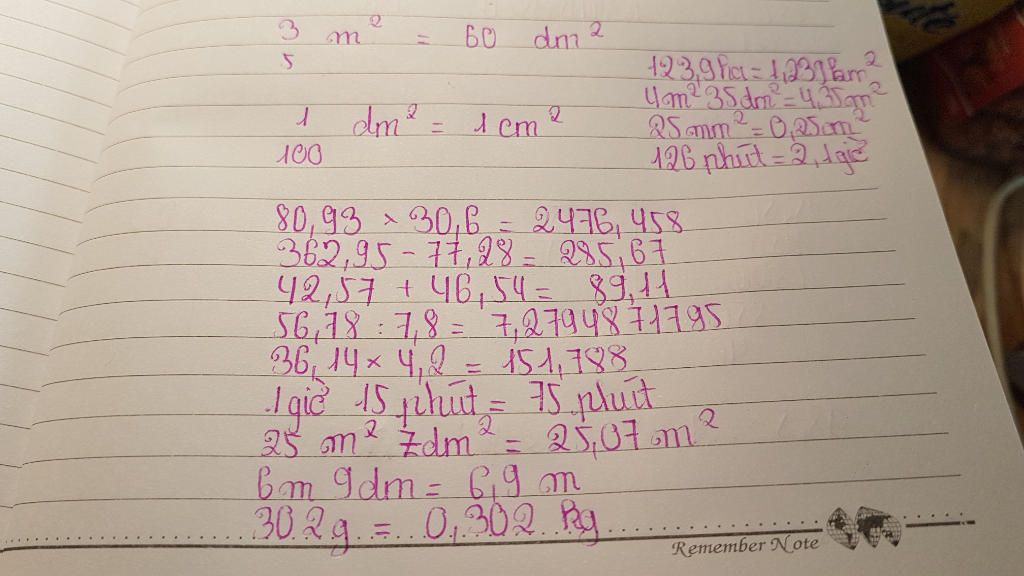 3 m² = 60 dm²
5
1 dm² = 1 cm²
100
123,9ha = 1,239km²
4m² 35dm² = 4,35m²
25mm² = 0,25cm²
126 phút = 2,1giờ
80,93 × 30,6 = 2476,458
362,95 - 77,28 = 285,67
42,57 + 46,54 = 89,11
56,78 : 7,8 = 7,2794871795
36,14 × 4,2 = 151,788
1giờ 15 phút = 75 phút
25 m² 7dm² = 25,07 m²
6m 9dm = 6,9 m
302g = 0,302 kg
Remember Note